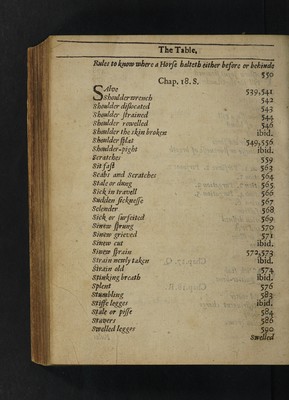 The Table.
Rules to know where a Horse halteth either before or behinde
550
Chap. 18. S.
SAlve 539,541
Shoulder wrench 542
Shoulder dislocated 543
Shoulder strained 544
Shoulder rowelled 546
Shoulder the skin broken ibid.
Shoulder splat 549,556
Shoulder-pight ibid.
Scratches 559
Sit fast 563
Scabs and Scratches 564
Stale or dung 565
Sick in travell 566
Sudden sicknesse 567
Selender 568
Sick or surfeited 569
Sinew sprung 570
Sinew grieved 571
Sinew cut ibid.
Sinew sprain 572,573
Strain newly taken ibid.
Strain old 574
Stinking breath ibid.
Splent 576
Stumbling 583
Stiffe legges ibid.
Stale or pisse 584
Stavers 586
Swelled legges 590
Swelled